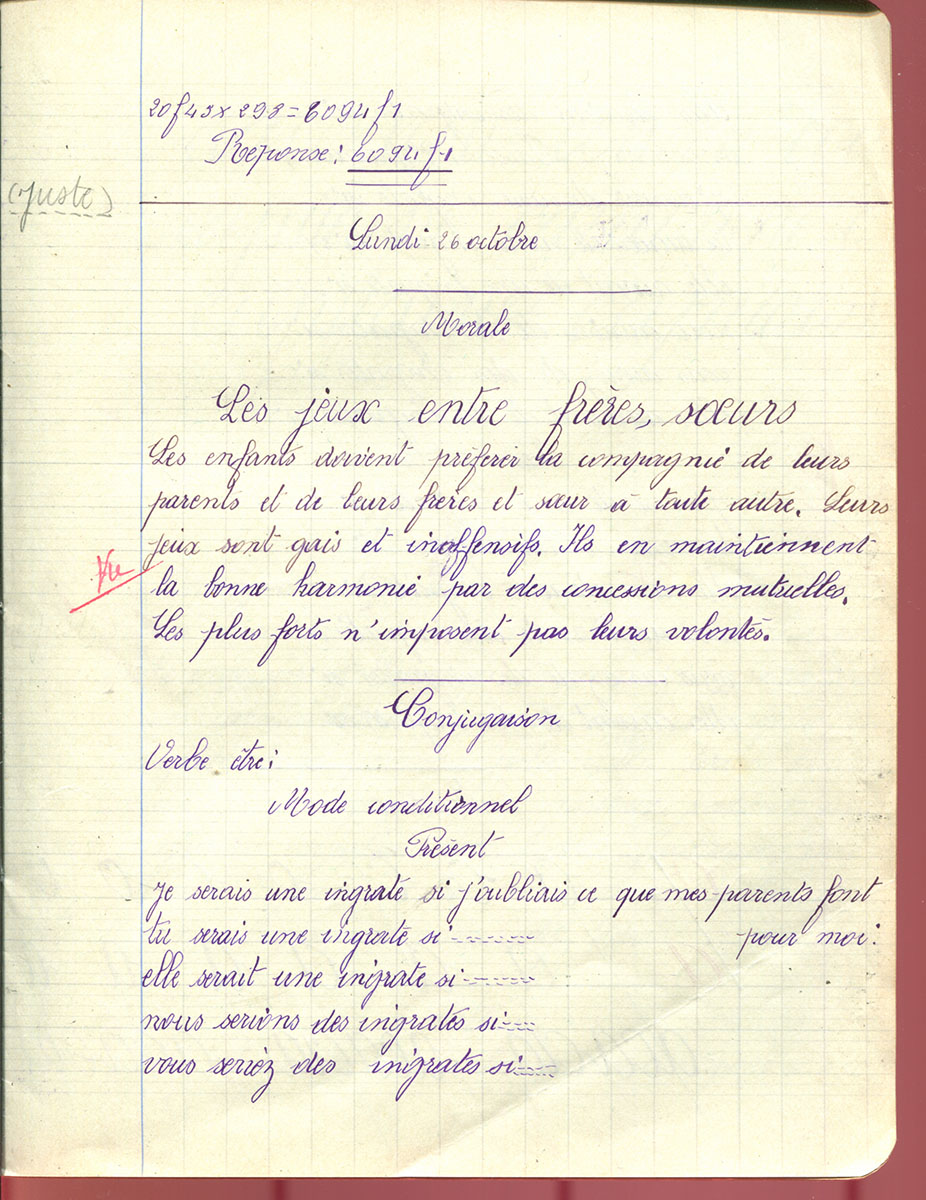 20f43 x 298 = 6094f1
Réponse : 6094f1
(juste)
Lundi 26 octobre
Morale
Les jeux entre frères, sœurs
Les enfants doivent préférer la compagnie de leurs
parents et de leurs frères et sœur à toute autre. Leurs
jeux sont gais et inoffensifs. Ils en maintiennent
Vu
la bonne harmonie par des concessions mutuelles.
Les plus forts n'imposent pas leurs volontés.
Conjugaison
Verbe être :
Mode conditionnel
Présent
Je serais une ingrate si j'oubliais ce que mes parents font
tu serais une ingrate si ------ pour moi.
elle serait une ingrate si ------
nous serions des ingrates si ----
vous seriez des ingrates si ----